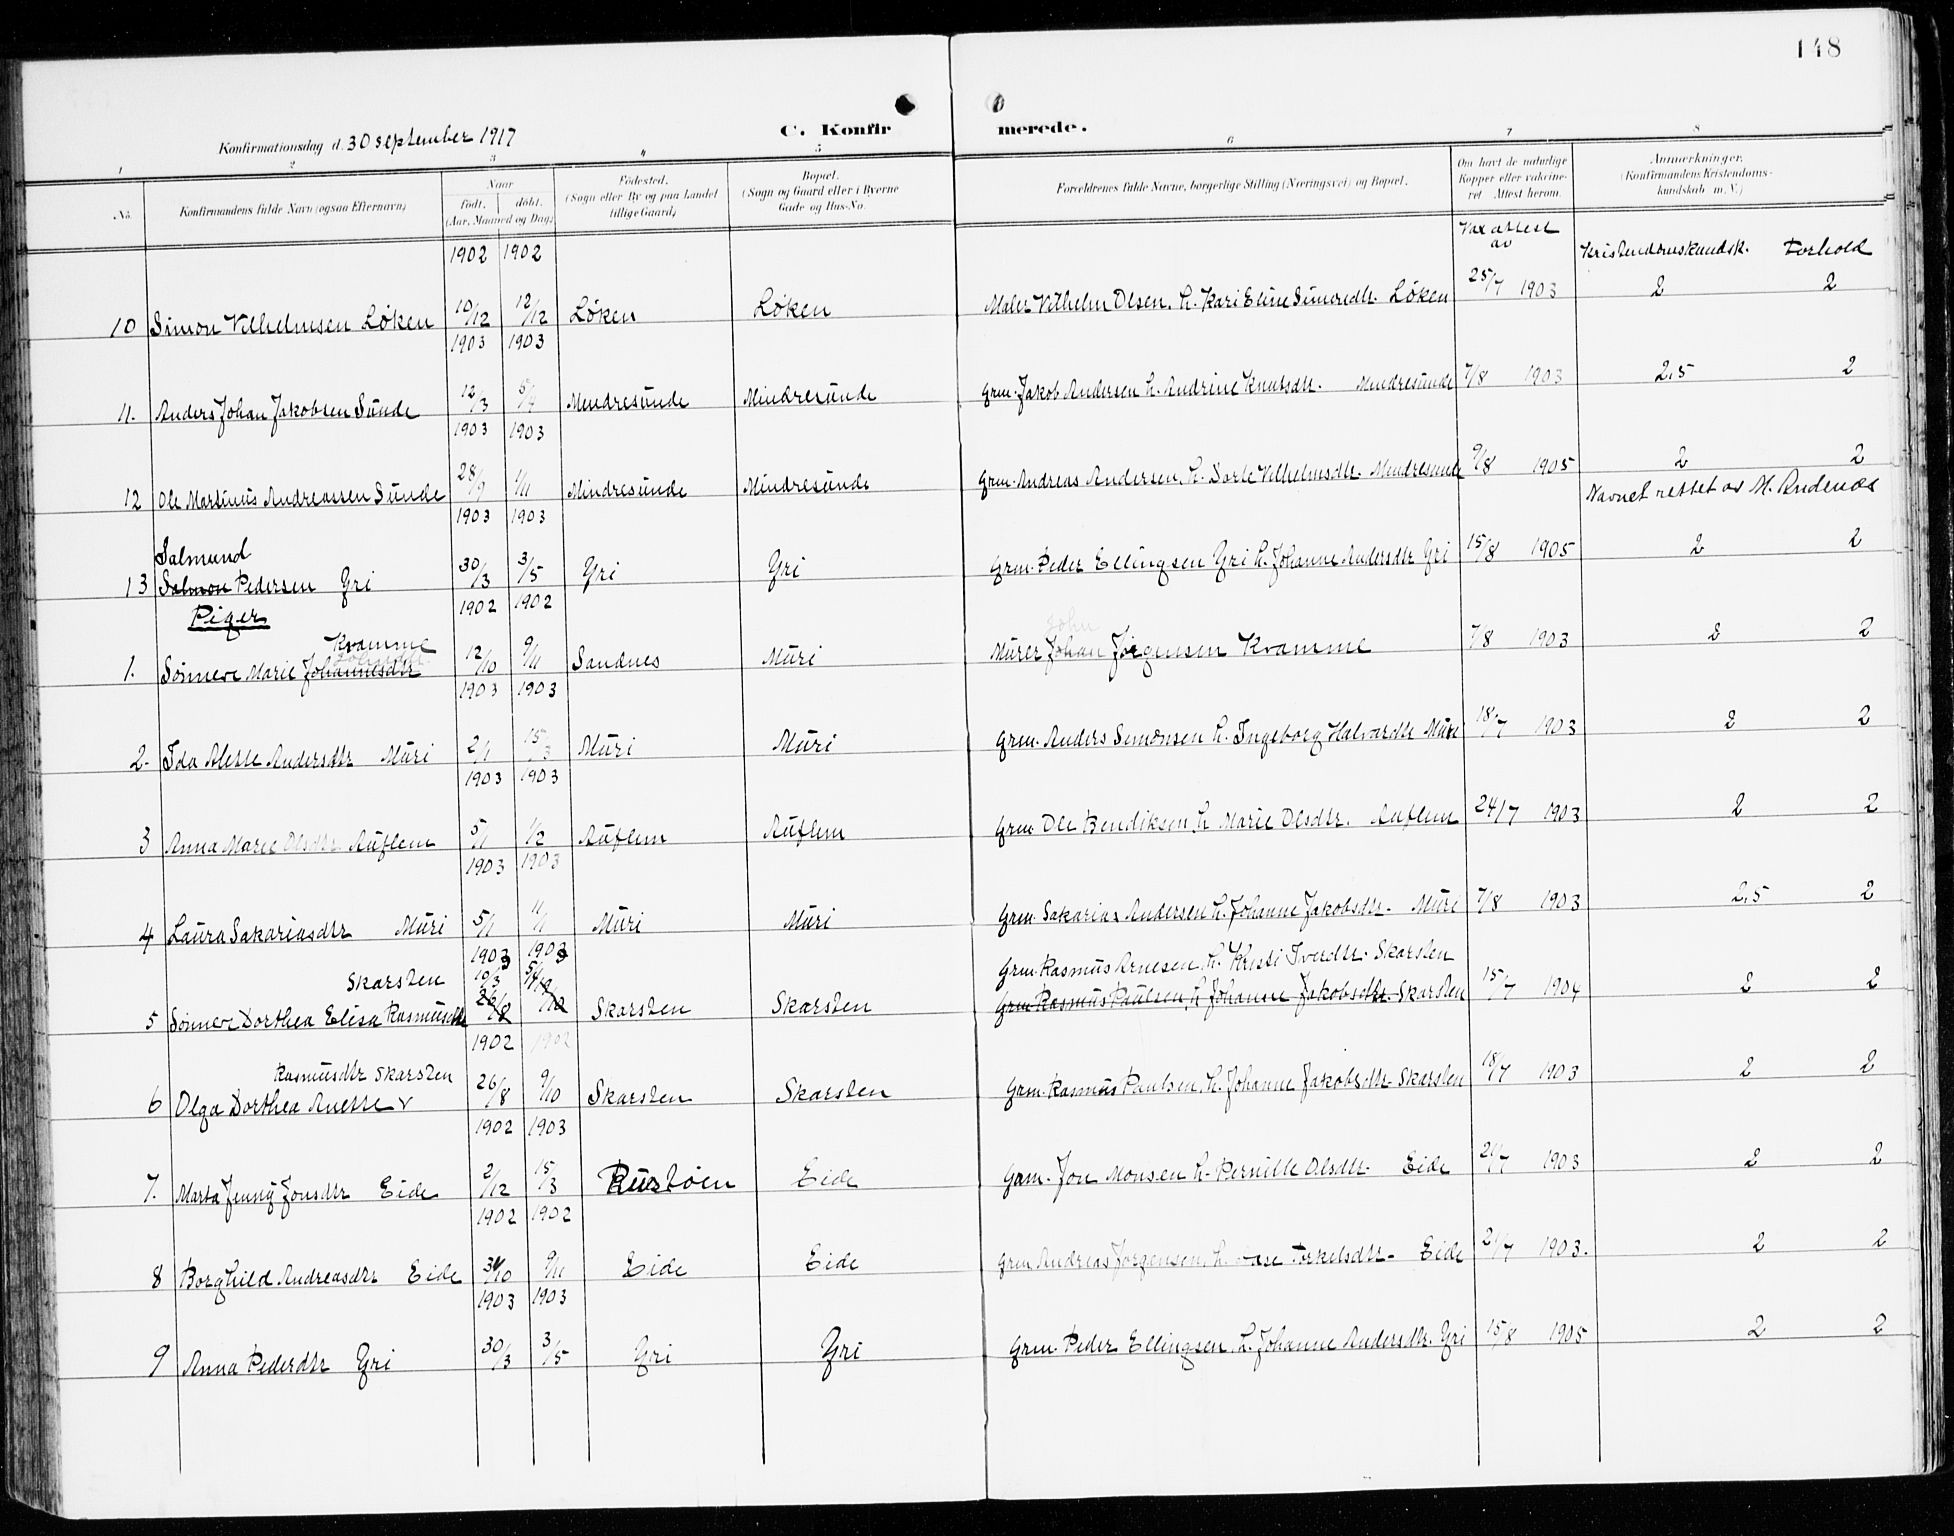 148
Konfirmationsdag d. 30 september 1917
C. Konfirmerede.
1 2 3 " 5 6 7 8
No. Konfirmandens fulde Navn (ogsaa Efternavn) Naar født. døbt. (Aar, Maaned og Dag) Fødested. (Sogn eller By og paa Landet tillige Gaard) Bopæl. (Sogn og Gaard eller i Byerne Gade og Hus-No. Forældrenes fulde Navne, borgerlige Stilling (Næringsvei) og Bopæl. Om havt de naturlige Kopper eller vakcineret Attest herom. Anmærkninger. (Konfirmandens Kristendomskundskab m. V.)
Vax attest av Kristendomskundsk. Forhold
1902 1902
10 Simon Vilhelmsen Løken 10/12 12/12 Løken Løken Maler Vilhelm Olsen, h. Kari Eline Simonsdtr. Løken 25/7 1903 2 2
1903 1903
11. Anders Johan Jakobsen Sunde 12/3 5/4 Mindresunde Mindresunde Grm. Jakob Andersen h. Andrine Knutsdtr. Mindresunde 7/8 1903 2,5 2
1903 1903
12 Ole Martinus Andreassen Sunde 28/9 1/11 Mindresunde Mindresunde Grm. Andreas Andersen, h. Dorte Vilhelmsdtr. Mindresunde 9/8 1905 2 2
Navnet rettet av M. Andenæs
1903 1903
Salmund
13 Salmon Pedersen Yri 30/3 3/5 Yri Yri Grm. Peder Ellingsen Yri h. Johanne Andersdtr Yri 15/8 1905 2 2
Piger
1902 1902
Kvamme
John
1. Sønneve Marie Johannesdtr 12/10 9/11 Sandnes Muri Murer Johan Jørgensen Kvamme 7/8 1903 2 2
1903 1903
2. Ida Alette Andersdtr Muri 2/1 15/3 Muri Muri Grm. Anders Simonsen h. Ingeborg Halvardtr Muri 18/7 1903 2 2
1903 1903
3 Anna Marie Olsdtr Auflem 5/1 1/2 Auflem Auflem Grm. Ole Bendiksen, h Marie Olsdtr. Auflem 24/7 1903 2 2
1903 1903
4 Laura Sakariasdtr Muri 5/1 11/1 Muri Muri Grm. Sakarias Andersen h. Johanne Jakobsdtr. Muri 7/8 1903 2,5 2
1903 1903
Skarsten 10/3 5/4 Grm. Rasmus Arnesen, h. Kristi Iverdtr. Skarsten
5 Sønneve Dorthea Elisa Rasmusdtr 26/8 Skarsten Skarsten Grm Rasmus Paulsen, h Johanne Jakobsdtr. Skarsten 15/7 1904 2 2
1902 1902
Rasmusdtr Skarsten
6 Olga Dorthea Anette v 26/8 9/10 Skarsten Skarsten Grm. Rasmus Paulsen, h. Johanne Jakobsdtr. Skarsten 18/7 1903 2 2
1902 1903
7. Marta Jenny Jonsdtr Eide 2/12 15/3 Rustøen Eide Grm. Jon Monsen h. Pernille Olsdtr. Eide 21/7 1903 2 2
1902 1902
8 Borghild Andreasdtr Eide 9/11 Eide Eide Grm Andreas Jørgensen, h. Torkelsdtr. Eide 21/7 1903. 2 2
1903 1903
9 Anna Pedersdtr Yri 30/3 3/5 Yri Yri Grm. Peder Ellingsen, h. Johanne Andersdtr. Yri 15/8 1905 2 2